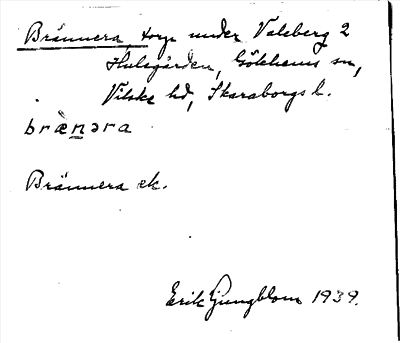 Brännera, torp under Valeberg 2
Hulegården, Gökhems sn,
Vilske hd, Skaraborgs l.
brænəra
Brännera ek.
Erik Ljungblom 1939.